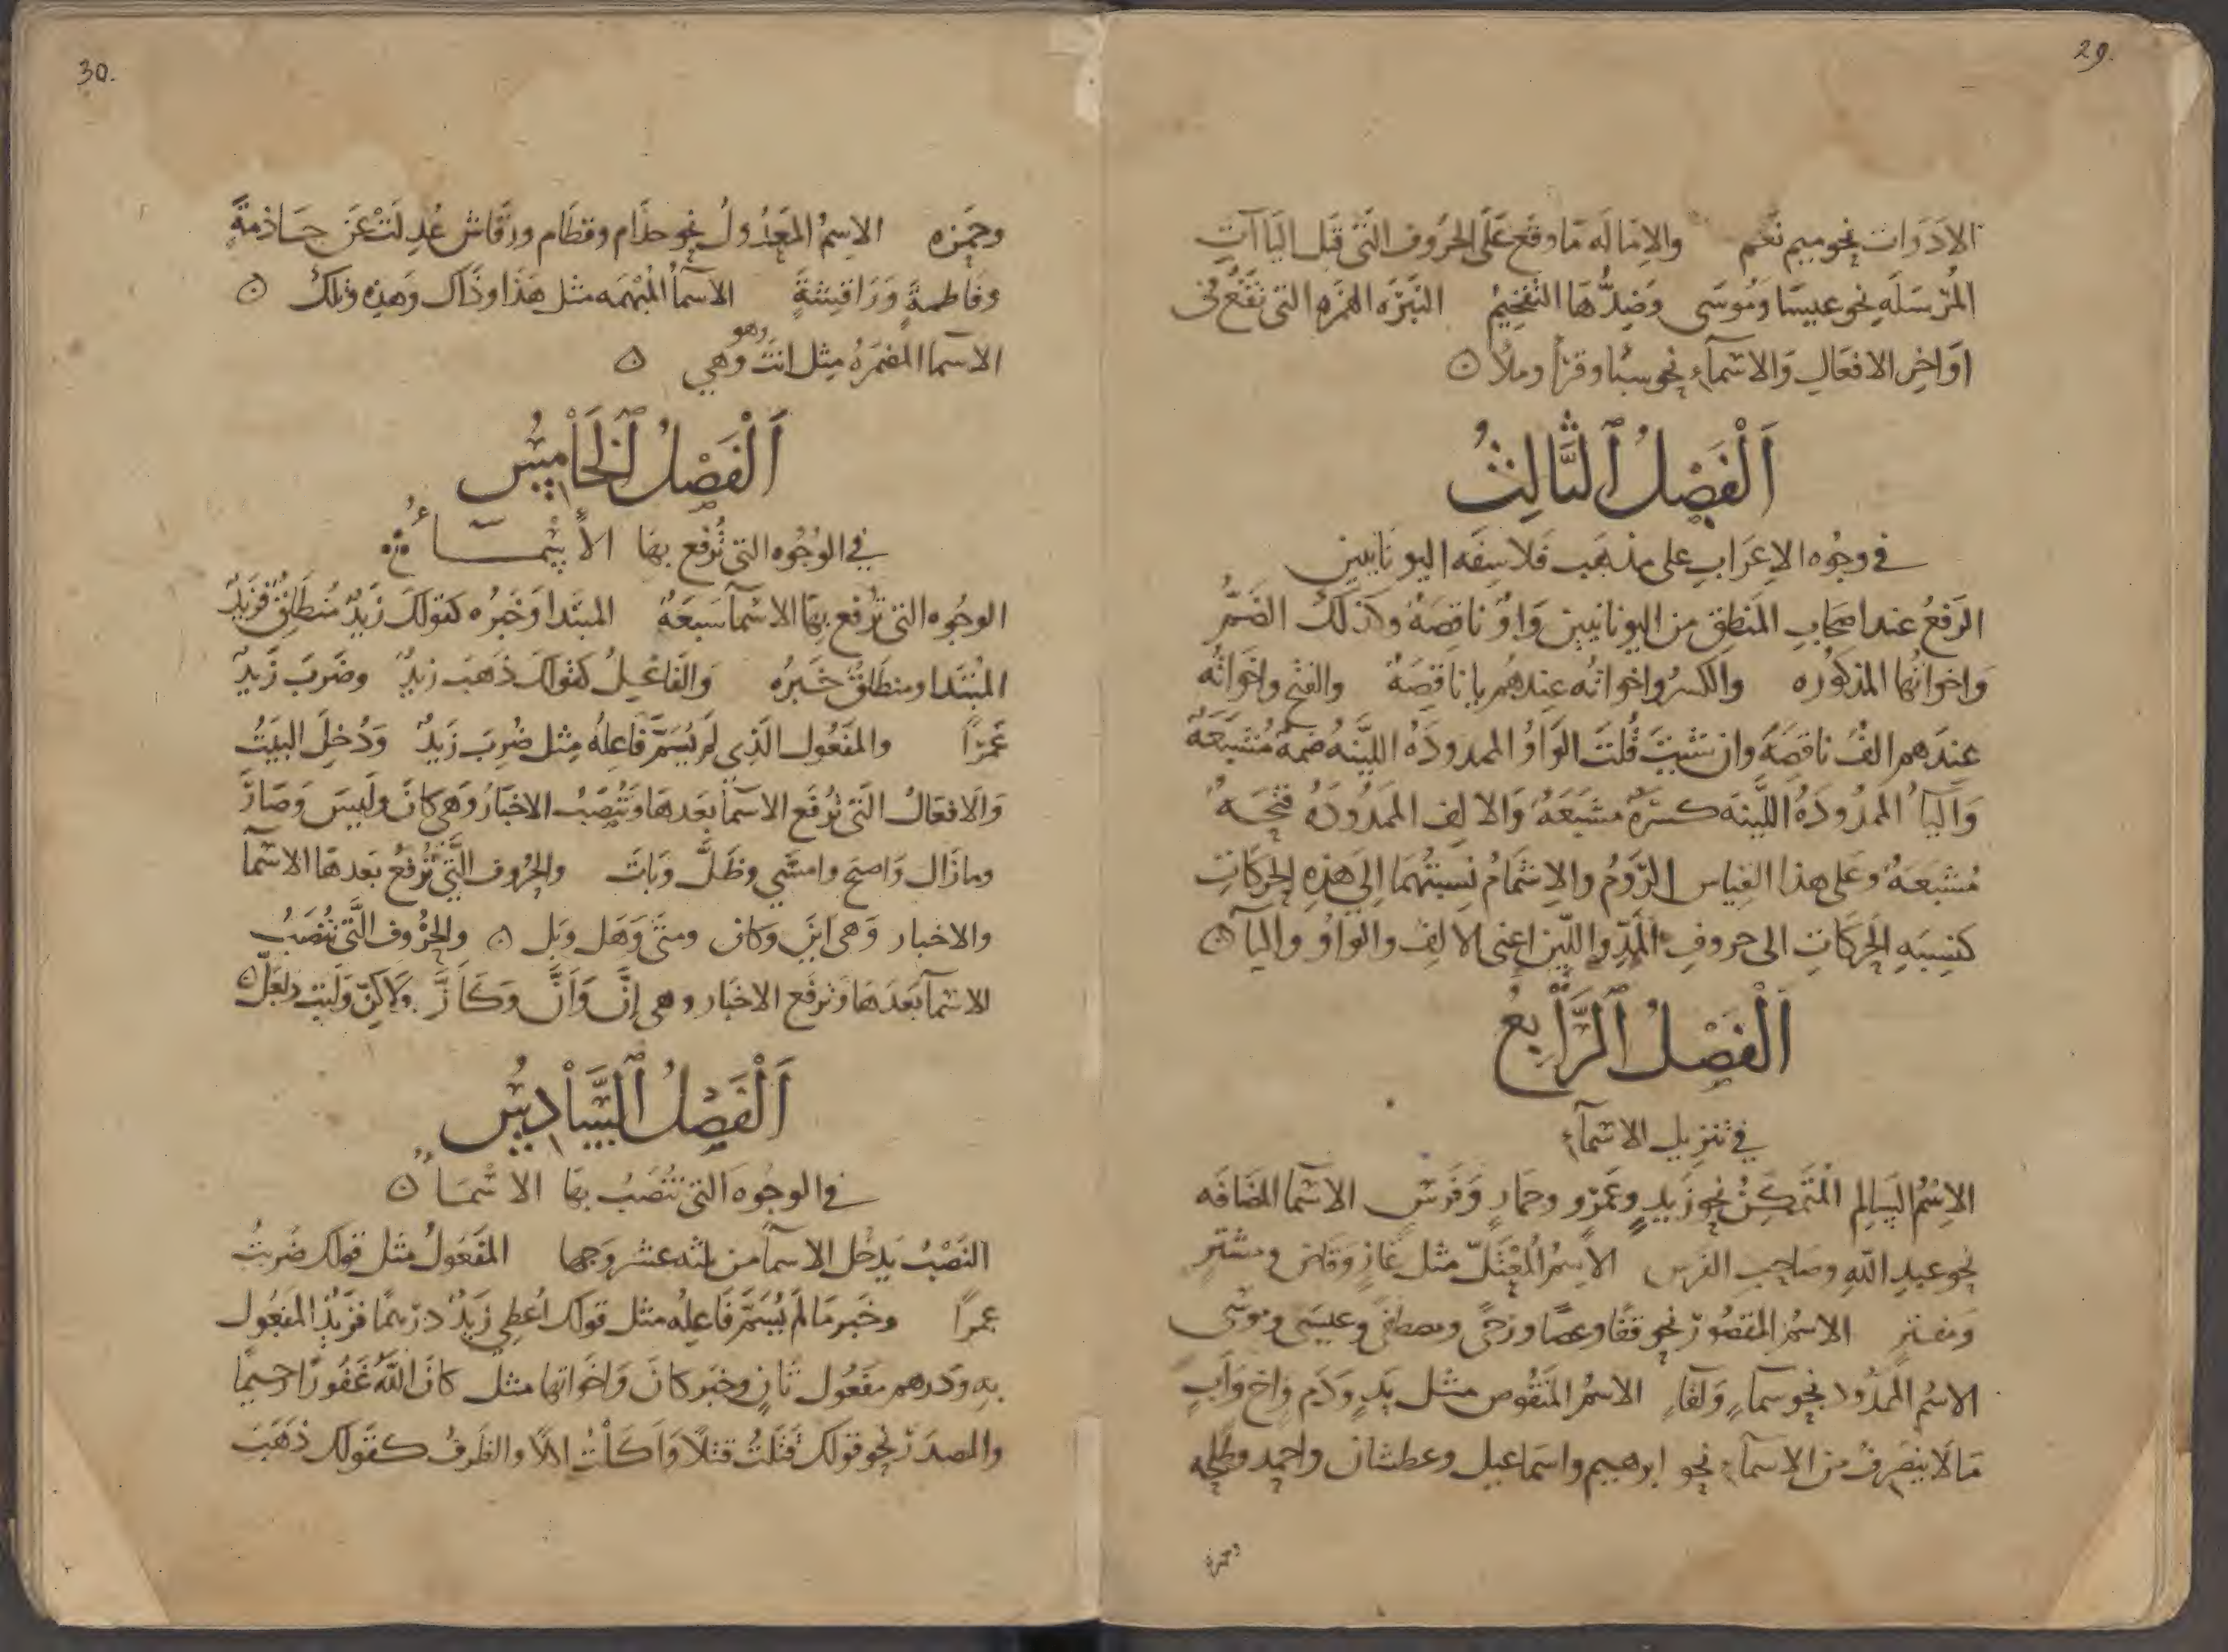 29.
الادَوَات نحو ميم نَعَم والاِمَالَه مَا وقَع عَلَى الحُروُف التَّى قَبل اليَاآتِ
المُرْسَلَه نحو عيسَا وَمُوسَى وَضِدُّهَا التَفخِيمُ النَبْرَه الهمزَه التى تَقَعُ فى
اوَاخِر الافعَالِ وَالاسْمَآءِ نحو سبُا وقرَأ وملأ ه
اَلْفَصْلُ اَلثَّالِثُ
فى وجُوه الاِعرَابِ على مذهَب فَلاسِفَه اليونانيين
الرَفعُ عند اصحَابِ المَنطِق من اليونانيين وَاوٌ ناقِصَهٌ وكذلكَ الضَمُّ
وَاخوَاتُها المذكوُره والكسرُ واخواتُه عِندهُم يا ناقِصَهٌ والفتح واخوَاتُه
عِندَهم الفٌ ناقصَهٌ وان شئيتَ قُلتَ الوَاوُ الممدودَهُ الليَّنهُ ضمهٌ مُشبَعَهٌ
وَاليآُ الممَدُودَهُ اللَّينَه كسرَهٌ مشبَعَهٌ وَالالِف الممَدُودَهُ فتحَهٌ
مُشبَعَهٌ وعَلى هذا القِياس الرَّوْمُ والاِشمَامُ نِسبَتُهُمَا اِلى هَذِهِ الحَركَاتِ
كنِسبَهِ الحَركَاتِ الى حروفِ المَدِّ واللّين اعنى الالِف والوَاوُ واليآ ه
اَلْفَصْلُ اَلرَّابِعُ
فى تنزيل الاسْمآءِ
الاِسْمُ السَالِم المُتَمَكِّنُ نحو زَيدٍ وعَمرٍو وحمَارٍ وَفَرَسٍ الاسْمآ المُضَافَه
نحو عبدِ اللّهِ وصَاحِبِ الفَرس الاِسمُ المُعْتَلّ مثل غازٍ وقاضٍ ومشترٍ
وَمفترٍ الاسْمُ المقصُورُ نحو قفًا وعصًا ورَحًى ومصطفَى وعيسَى وموسَى
الاسْمُ الممَدُود نحو سمآءٍ وَلقآءٍ الاسْمُ المَنقُوص مثل يَدٍ وَدَمٍ واخٍ وَابٍ
مَا لَا يَنصَرفُ من الاسمآءِ نحو ابرهيم واسمَاعيل وعطشان واحمد وطلحه
وحمزه
30.
وحَمزه الاسِمُ المَعْدُولُ نحو حذَام وقطَام ورَقَاش عُدِلَتْ عَن حَاذمةٍ
وفَاطمةٍ وَرَاقِشةٍ الاسمآُ المُبْهَمَه مثل هَذَا وذَاك وَهذِه وتلكَ ه
الاسمآ المضمَرهُ مِثل انتَ وهو وهي ه
اَلْفَصْلُ اَلْخَامِسُ
في الوُجُوه التى تُرفع بهَا الاَسْمَآءُ
الوجُوه التى تُرفع بهَا الاسْمآ سَبعَهٌ المبتَدا وَخَبرُه كقولكَ زَيدٌ مُنطَلِقٌ فزَيدٌ
المُبْتَدا ومنطَلقٌ خَبَرُه وَالفَاعِلُ كقَولكَ ذَهَبَ زيدٌ وضَرَبَ زَيدٌ
عَمرًا والمَفعُول الَذِى لَم يُسَمَّ فَاعِلُه مِثل ضُرِبَ زَيدٌ وَدُخِلَ البيَتُ
وَالَافعَالُ الَتى تُرفَع الاسمآُ بعَدهَا وَتُنْصَبُ الاخبَارُ وَهى كانَ وَليسَ وَصَارَ
وما زَال وَاصبحَ وامسَى وظَلَّ وَبَاتَ والحُرُوف الَّتى تُرْفَعُ بعَدهَا الاسْمآ
والاخبار وَهى اَينَ وكان ومتَى وَهَل وبَل ه والحُروُف الَّتى تُنصَبُ
الاسْمآ بعَدَهَا وَترفَع الاخبَار وهى إنَّ وَاَنَّ وَكَاَنَّ ولاكِنّ وَليتَ ولعَلَّ ه
اَلْفَصْلُ اَلسَّادِسُ
فى الوجُوهِ التى تُنْصَبُ بهَا الاسْمَآ ه
النَصْبُ يَدخُل الاسمآَ من ثلثه عشر وَجها المَفعُولُ مثل قولك ضَربتُ
عمرًا وخَبر مَا لَم يُسَمَّ فَاعِلُه مثل قولك اُعطِى زَيدٌ درهَمًا فَزيدٌ المَفعُول
بهِ وَدرهم مفَعُول ثَانٍ وخبَر كانَ وَاخَواتها مثل كانَ اللّهُ غَفُورًا رحيمًا
والمصدَرُ نحو قولك قتَلتُ قتلًا وَاَكَلْتُ اكلًا والظَرفُ كقَولك ذَهَبَ